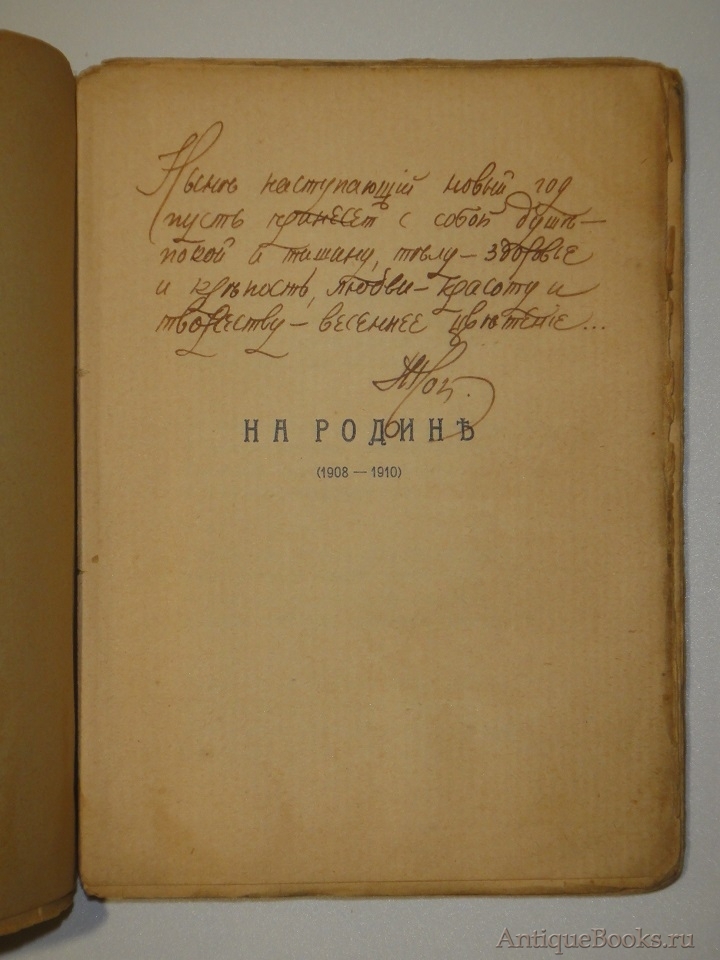 Нынѣ наступающій новый год
пусть принесетъ с собой душѣ —
покой и тишину, тѣлу — здоровье
и крѣпость, любви — красоту и
творчеству — весеннее цвѣтеніе...
НА РОДИНѢ
(1908 — 1910)
AntiqueBooks.ru